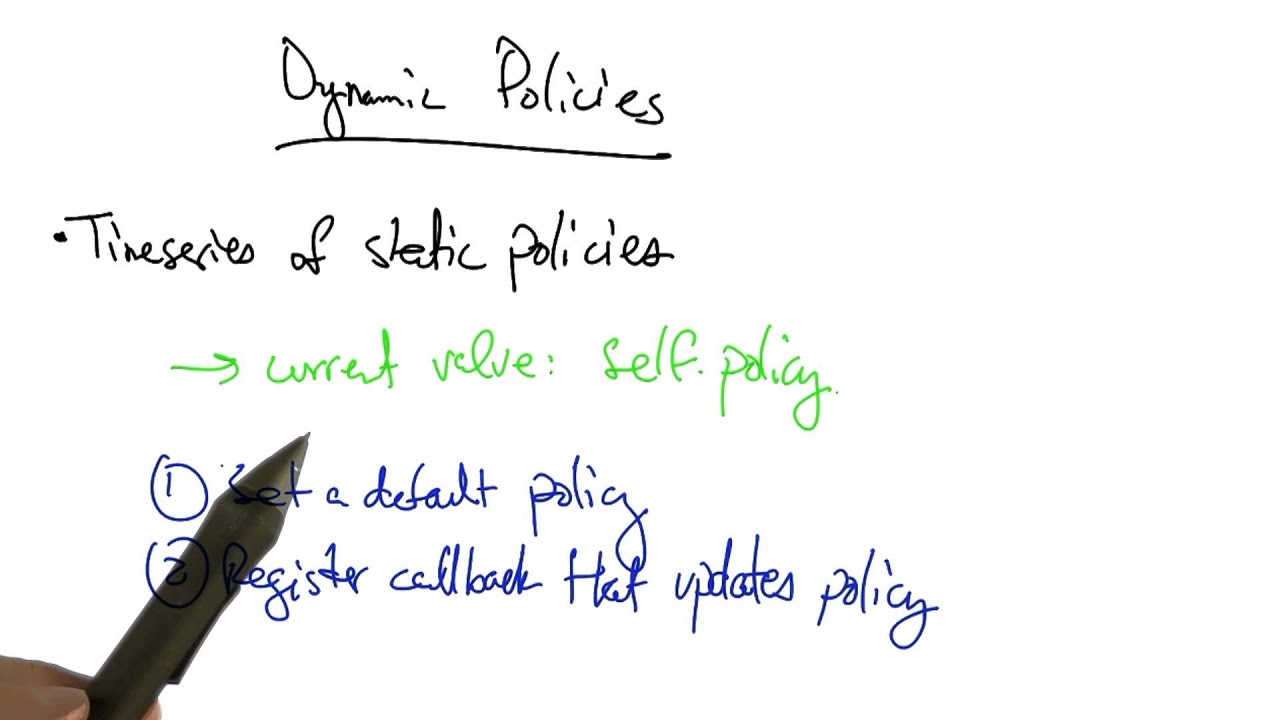 Dynamic Policies
• Timeseries of static policies
→ current value: self.policy.
① Set a default policy
② Register callback that updates policy